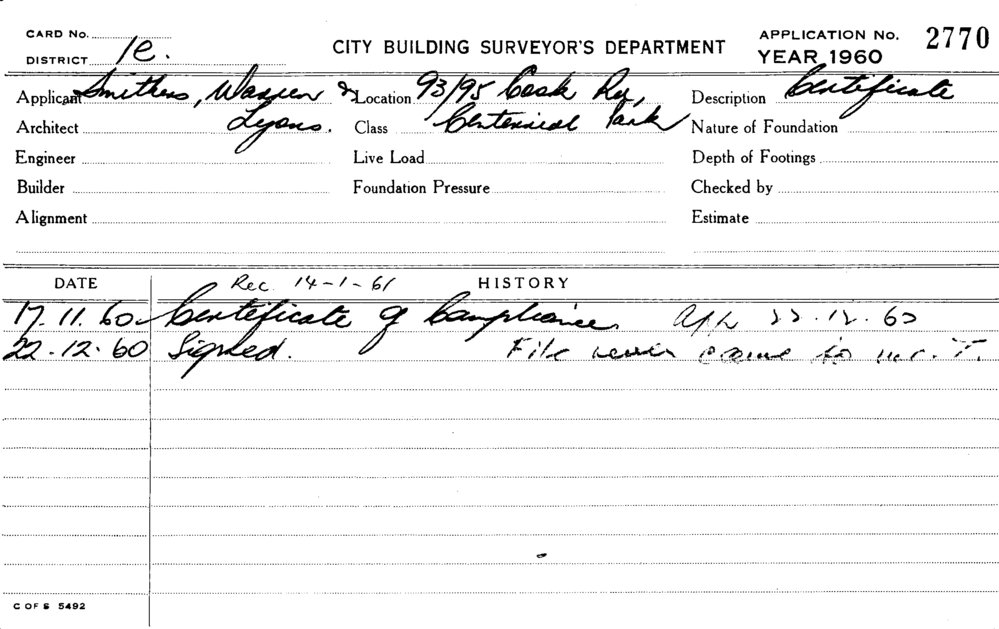 CARD No.
DISTRICT 1e.
CITY BUILDING SURVEYOR'S DEPARTMENT
APPLICATION No. 2770
YEAR 1960
Applicant Smithers, Warren & Lyons.
Location 93/95 Cook Rd, Centennial Park
Description Certificate
Architect
Class
Nature of Foundation
Engineer
Live Load
Depth of Footings
Builder
Foundation Pressure
Checked by
Alignment
Estimate
DATE
Rec. 14-1-61
HISTORY
17.11.60 Certificate of Compliance App 22.12.60
22.12.60 Signed. File never came to Mr. T.
C OF S 5492